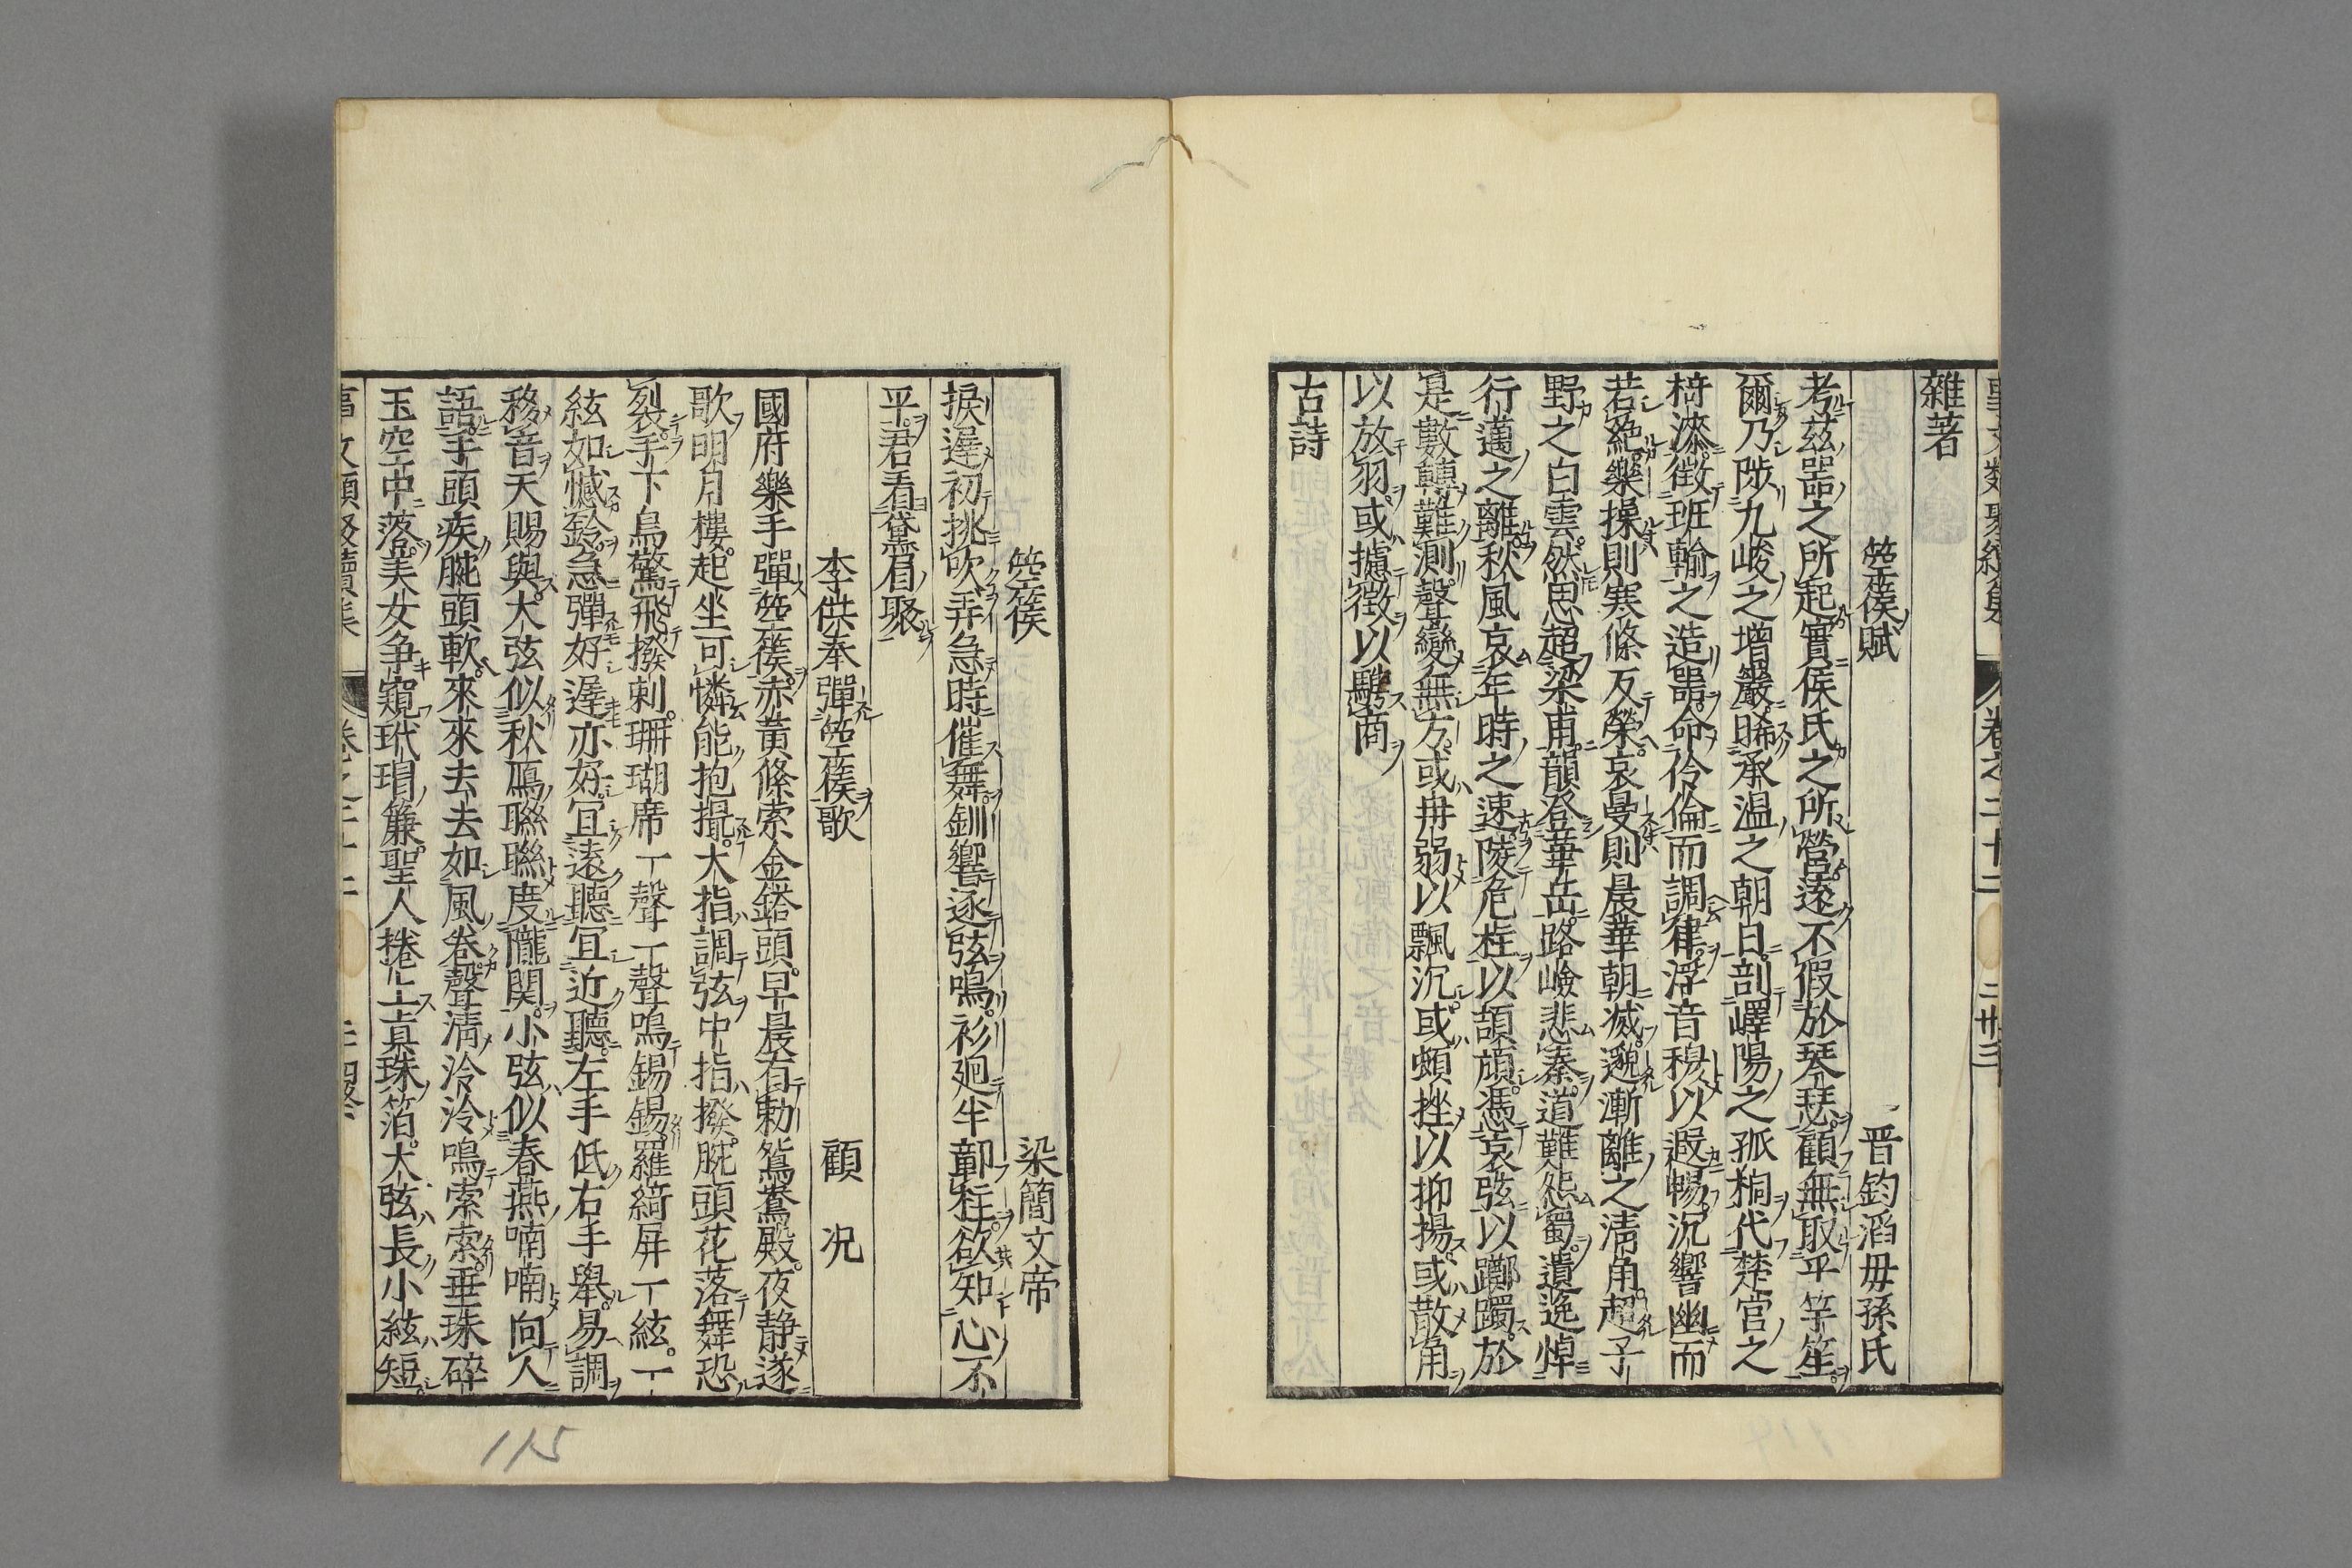 卷之二十二
雜著
箜篌賦　晋鈞滔毋孫氏
考茲噐之所起實侯氏之所營遠不假於琴瑟顧無取乎竽笙
爾乃陟九峻之增巖晞承温之朝日剖嶧陽之孤桐代楚宫之
椅漆徴班輸之造噐命伶倫而調律浮音穆以遐暢沉響幽而
若絶樂操則寒條反榮哀曼則晨華朝滅邈漸離之清角超子
野之白雲然思超梁甫韻登華岳路嶮悲秦道難怨蜀遺逸悼
行邁之離秋風哀年時之速陵危柱以頡頏憑哀弦以躑躅於
是數轉難測聲變無方或冉弱以飄沉或頓挫以抑揚或散角
以放羽或攄徵以騁商
古詩
箜篌　梁簡文帝
捩遲初挑吹弄急時催舞釧響逐弦鳴衫廻半鄣柱欲知心不
平君看黛眉聚
李供奉彈箜篌歌　顧况
國府樂手彈箜篌赤黃條索金鎝頭早晨有勅鴛鴦殿夜静遂
歌明月樓起坐可憐能抱撮大指調弦中指撥腕頭花落舞恐
裂手下鳥驚飛撥剌珊瑚席一聲一聲鳴錫錫羅綺屏一絃一
絃如憾鈴急彈好遲亦好冝遠聽冝近聽左手低右手舉易調
移音天賜與大弦似秋鴈聯聯度隴関小弦似春燕喃喃向人
語手頭疾腕頭軟來來去去如風卷聲清泠泠鳴索索垂珠碎
玉空中落美女争窺玳瑁簾聖人捲上真珠箔大弦長小絃短
115